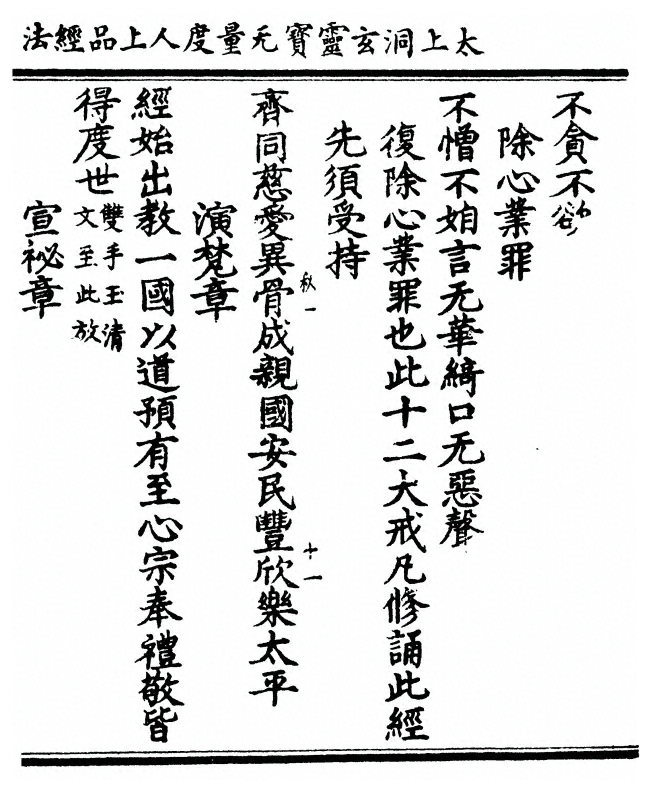 太上洞玄靈寶无量度人上品經法
不貪不欲
除心業罪
不憎不妒言无華綺口无惡聲
復除心業罪也此十二大戒凡修誦此經
先須受持
齊同慈愛異骨成親國安民豐欣樂太平
秋一
十一
演梵章
經始出教一國以道預有至心宗奉禮敬皆
得度世
雙手玉清
文至此放
宣祕章